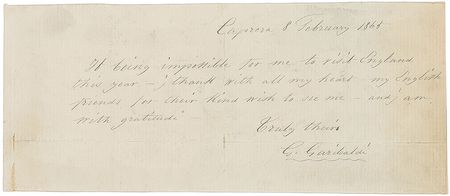 Caprera 8 February 1864
It being impossible for me to visit England
this year – i thank with all my heart – my English
friends for their kind wish to see me – and i am
with gratitude
Truly their
G. Garibaldi